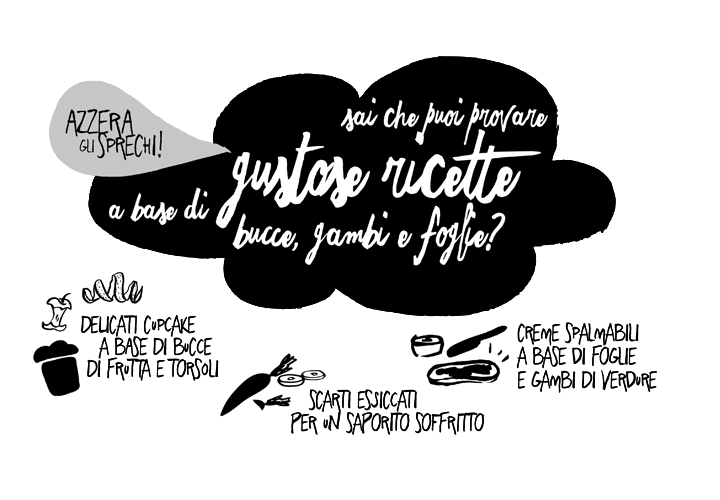 AZZERA
GLI SPRECHI!
sai che puoi provare
gustose ricette
a base di
bucce, gambi e foglie?
DELICATI CUPCAKE
A BASE DI BUCCE
DI FRUTTA E TORSOLI
SCARTI ESSICCATI
PER UN SAPORITO SOFFRITTO
CREME SPALMABILI
A BASE DI FOGLIE
E GAMBI DI VERDURE